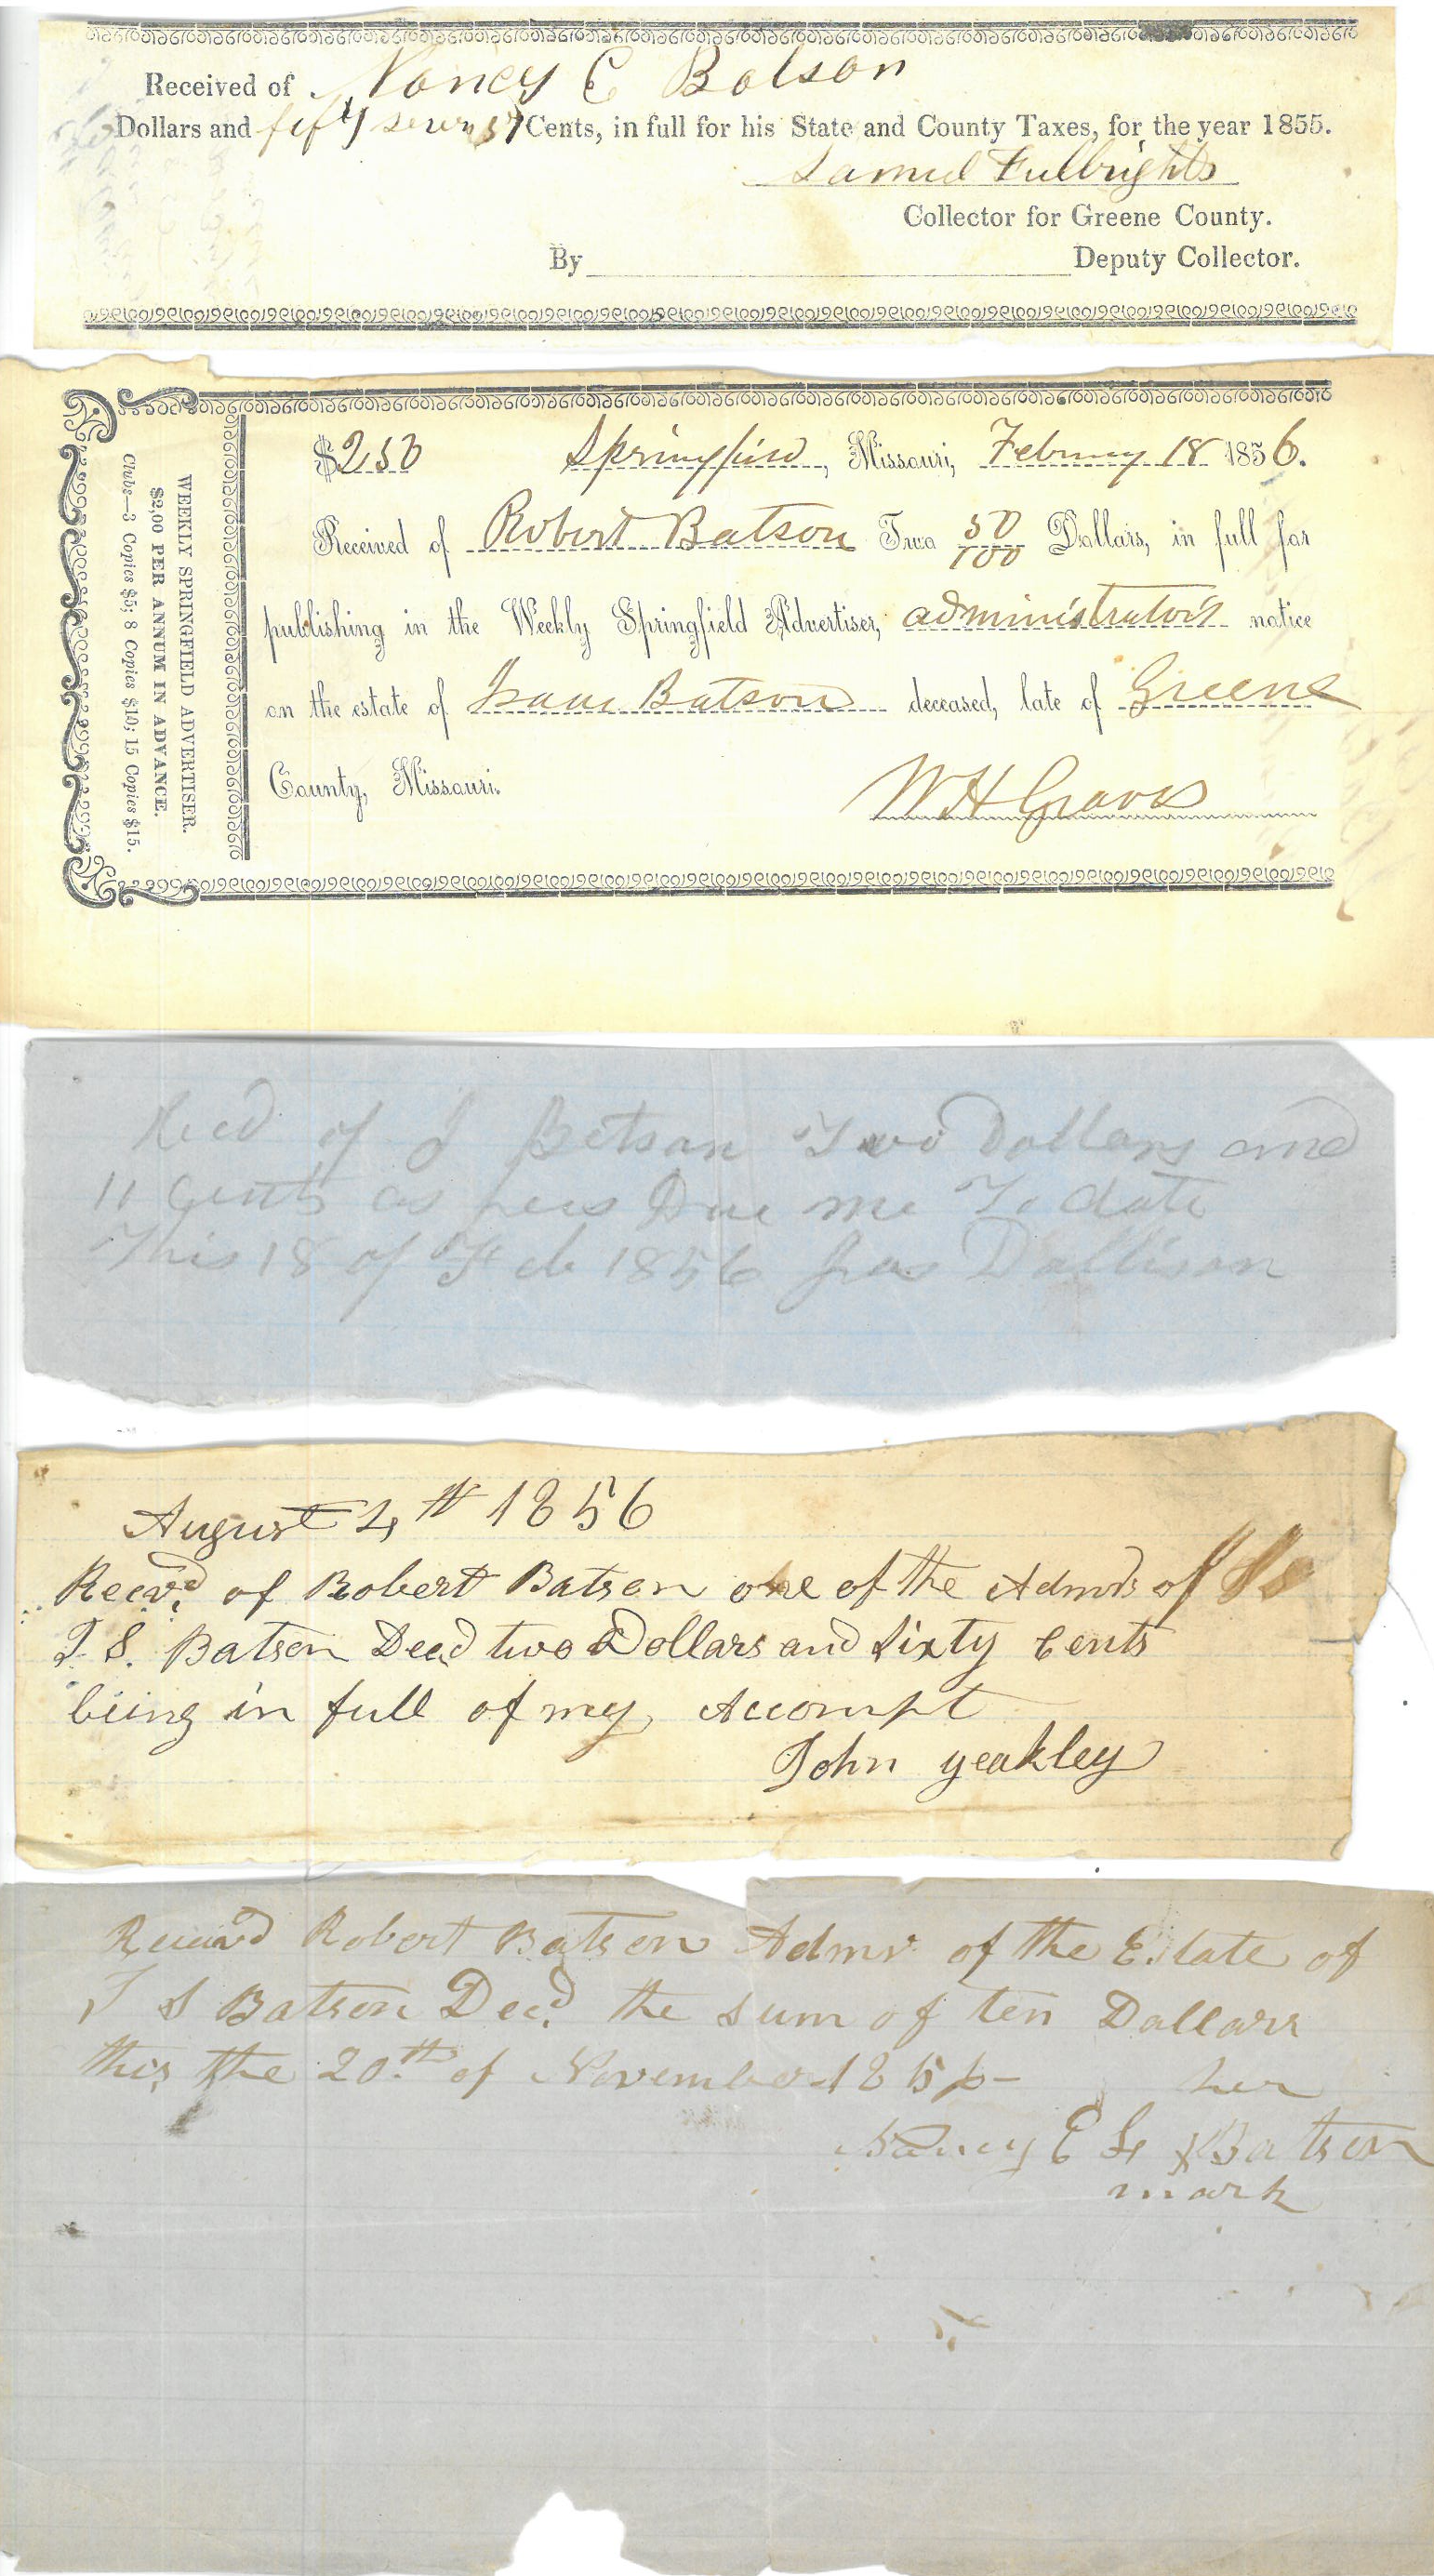 Received of Nancy E Batson
Dollars and fifty seven 57 Cents, in full for his State and County Taxes, for the year 1855.
Samuel Fulbright
Collector for Greene County.
By Deputy Collector.
WEEKLY SPRINGFIELD ADVERTISER.
$2,00 PER ANNUM IN ADVANCE.
Clubs—3 Copies $5; 8 Copies $10; 15 Copies $15.
$2.50 Springfield, Missouri, February 18 1856.
Received of Robert Batson Two 50/100 Dollars, in full for
publishing in the Weekly Springfield Advertiser, administrator's notice
on the estate of Isaac Batson deceased, late of Greene
County, Missouri.
W H Graves
Recd of J Batson Two Dollars and
11 Cents as fees Due me To date
This 18 of Feb 1856 Jas Dollison
August 4th 1856
Recvd of Robert Batson one of the Admrs of
I. S. Batson Decd two Dollars and Sixty Cents
being in full of my Accompt
John Yeakley
Received Robert Batson Admr of the Estate of
I S Batson Decd the sum of ten Dollars
this the 20th of November 1856 her
Nancy E L x Batson
mark